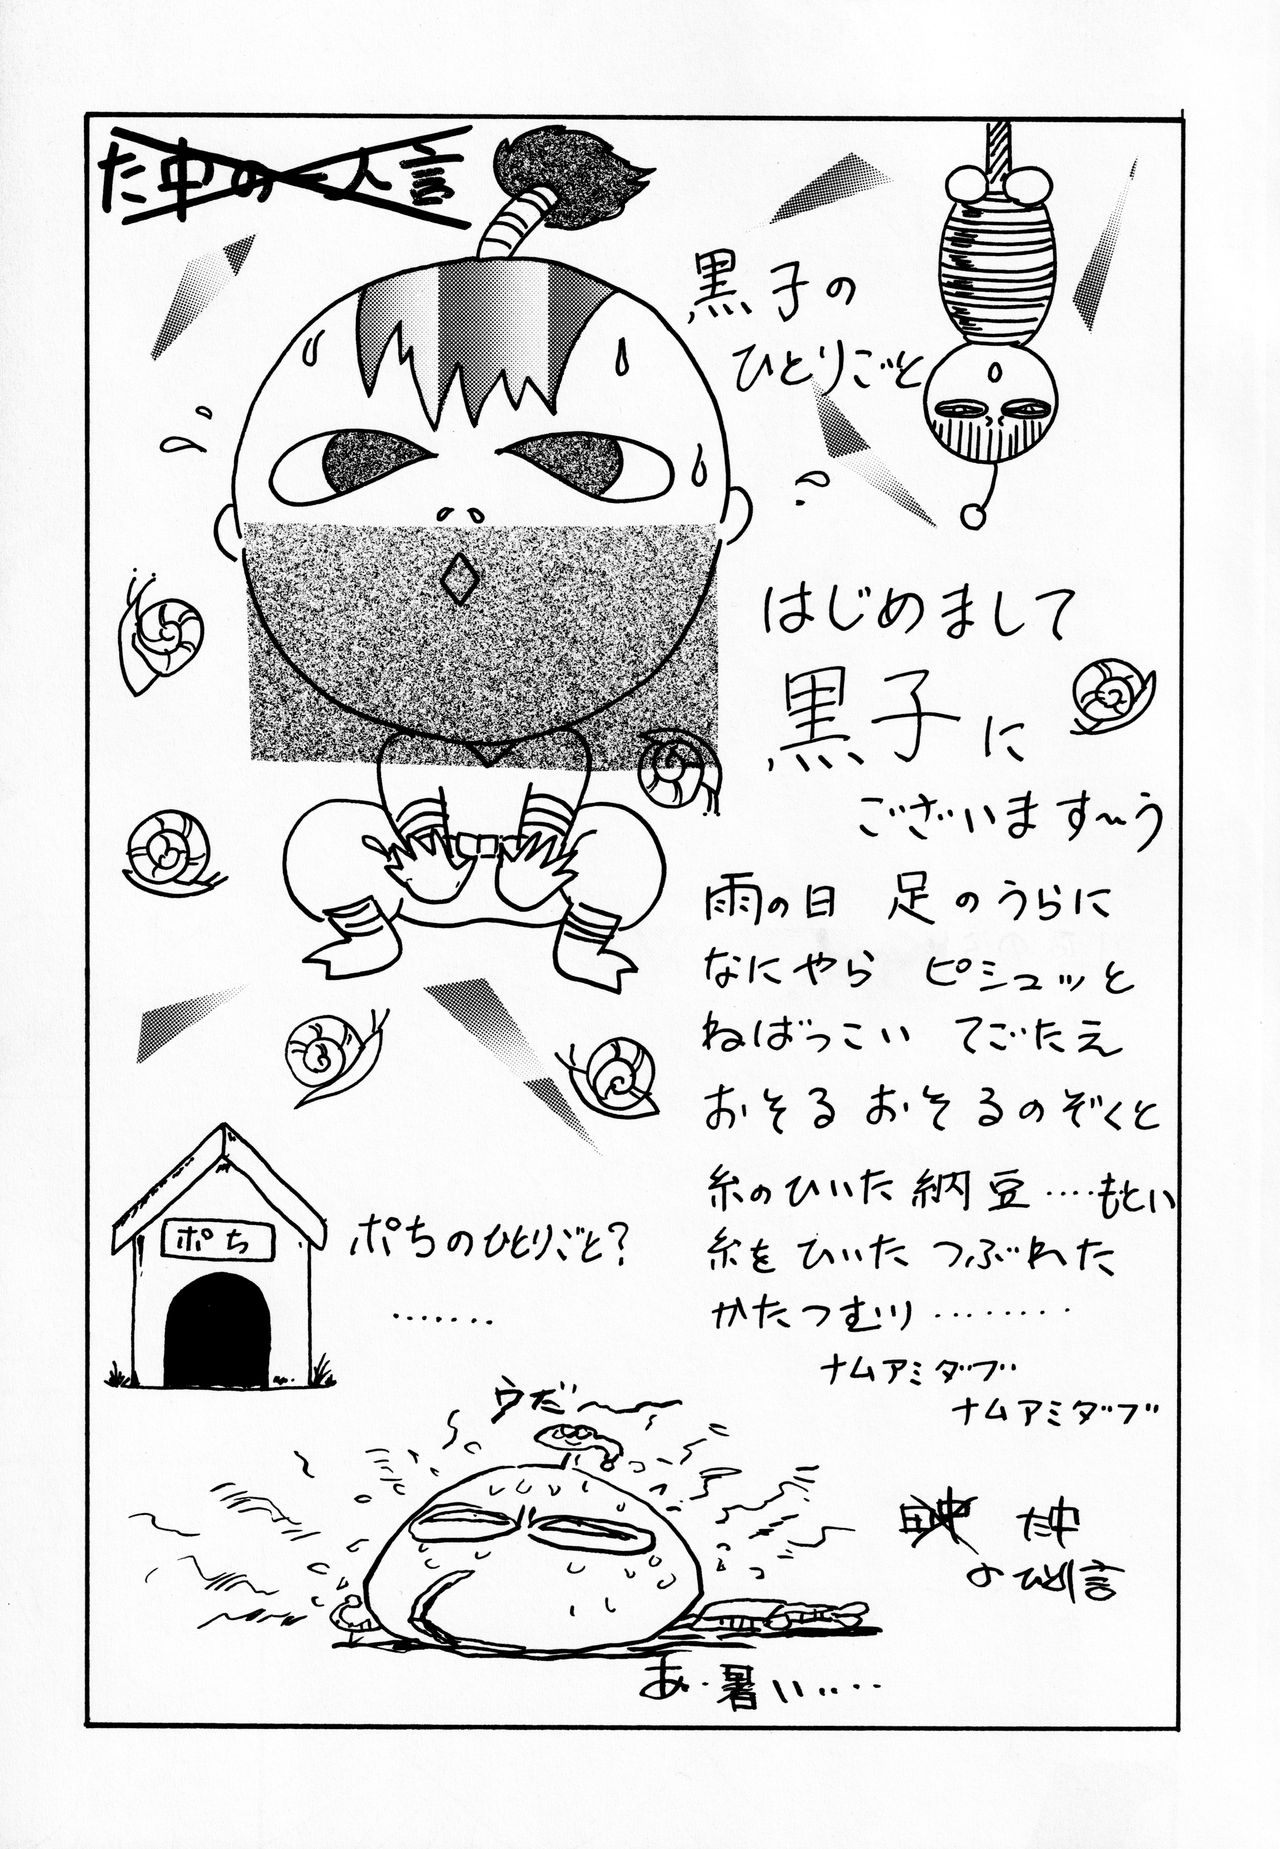 た中の一人言
黒子の
ひとりごと
はじめまして
黒子に
ございます〜う
雨の日 足のうらに
なにやら ピシュッと
ねばっこい てごたえ
おそる おそるのぞくと
糸のひいた 納豆‥‥もとい
糸を ひいた つぶれた
かたつむり‥‥‥‥
ナムアミダブ
ナムアミダブ
ポち
ポちのひとりごと?
‥‥‥
うだ〜
た中
のひとり言
あ‥暑い‥‥